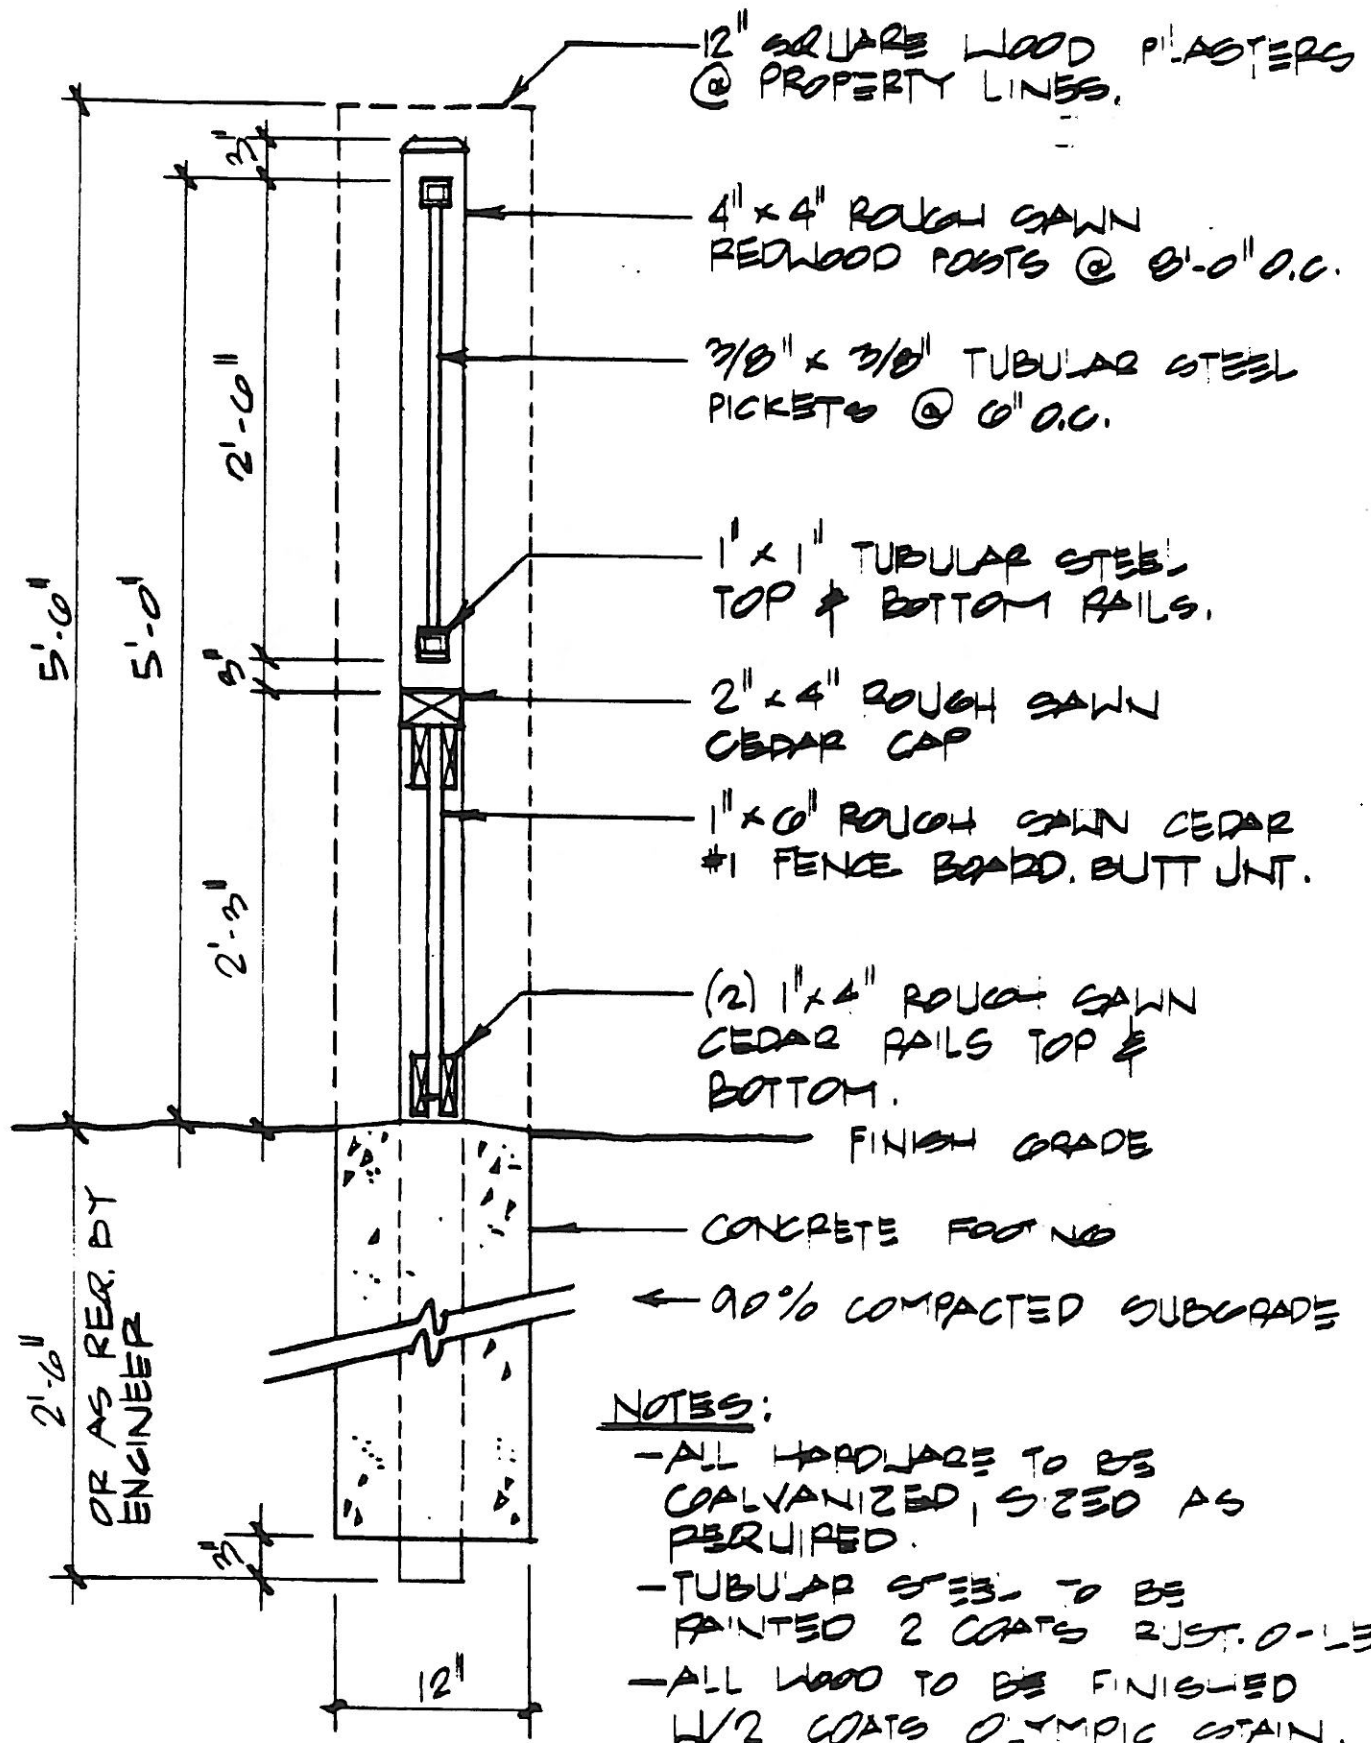 12" SQUARE WOOD PILASTERS
@ PROPERTY LINES.
4" x 4" ROUGH SAWN
REDWOOD POSTS @ 8'-0" O.C.
3/8" x 3/8" TUBULAR STEEL
PICKETS @ 6" O.C.
1" x 1" TUBULAR STEEL
TOP & BOTTOM RAILS.
2" x 4" ROUGH SAWN
CEDAR CAP
1" x 6" ROUGH SAWN CEDAR
#1 FENCE BOARD. BUTT JNT.
(2) 1" x 4" ROUGH SAWN
CEDAR RAILS TOP &
BOTTOM.
FINISH GRADE
CONCRETE FOOTING
90% COMPACTED SUBGRADE
NOTES:
- ALL HARDWARE TO BE
GALVANIZED, SIZED AS
REQUIRED.
- TUBULAR STEEL TO BE
PAINTED 2 COATS RUST-O-LE
- ALL WOOD TO BE FINISHED
W/2 COATS OLYMPIC STAIN.
5'-6"
5'-0"
3"
2'-6"
3"
2'-3"
2'-6"
OR AS REQ. BY
ENGINEER
3"
12"